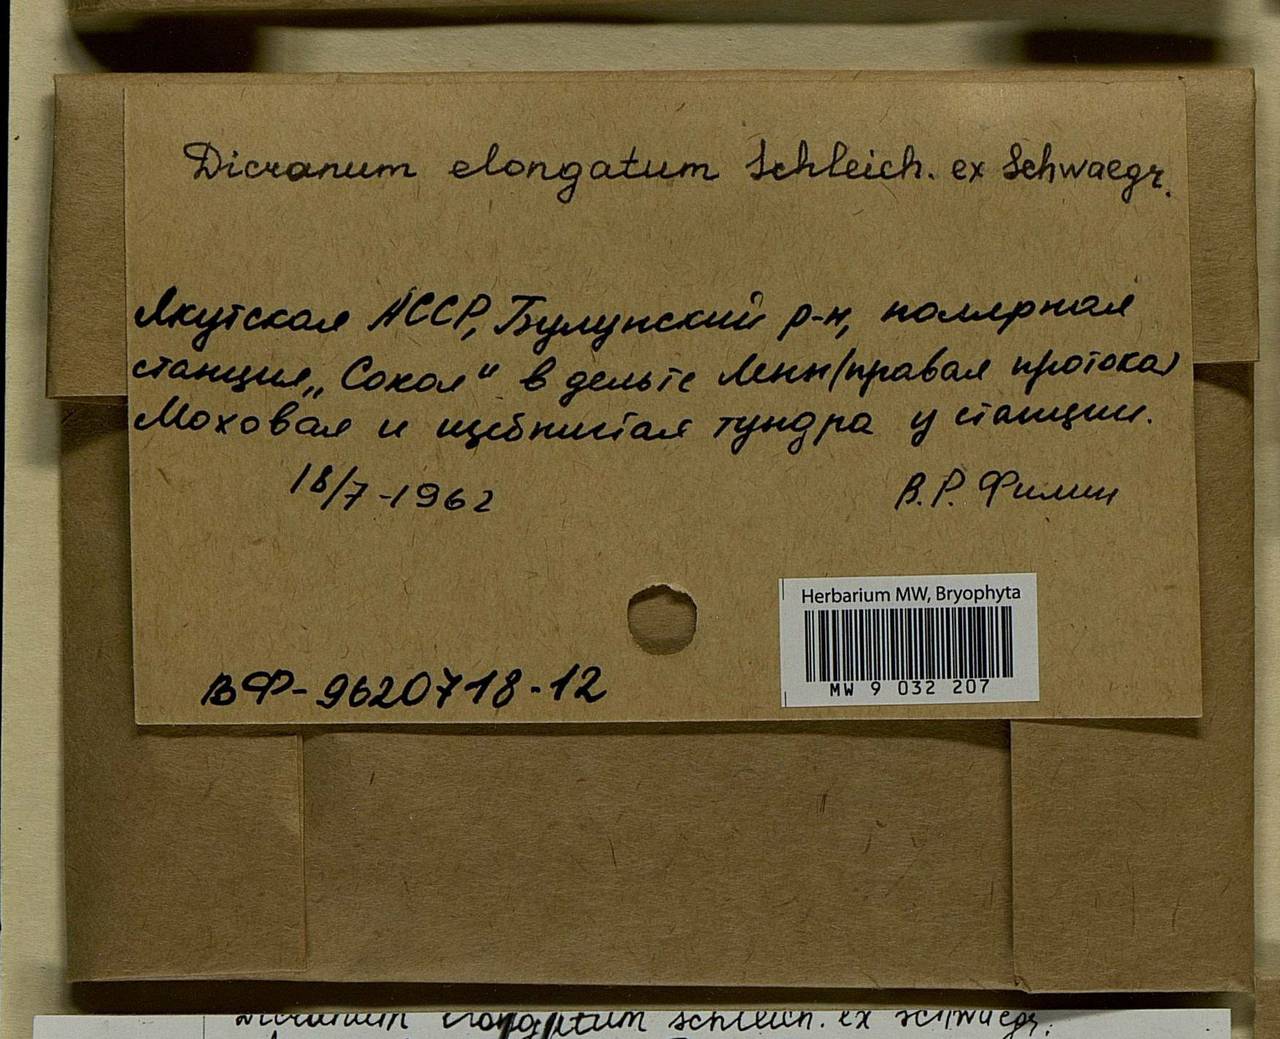 Dicranum elongatum Schleich. ex Schwaegr.
Якутская АССР, Булунский р-н, полярная
станция „Сокол" в дельте Лены (правая протока)
Моховая и щебнистая тундра у станции.
18/7-1962
В.Р. Филин
Herbarium MW, Bryophyta
MW 9 032 207
ВФ-9620718-12
Dicranum elongatum Schleich. ex Schwaegr.